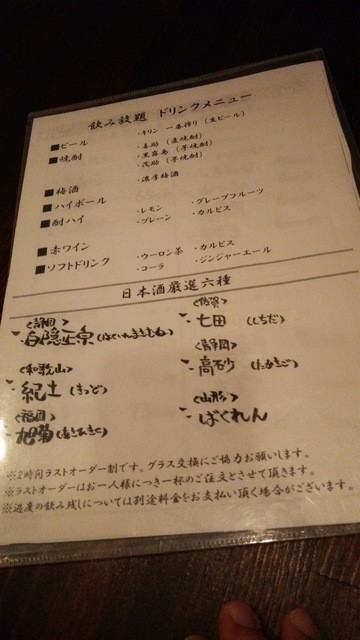 飲み放題 ドリンクメニュー
■ビール ・キリン 一番搾り (生ビール)
■焼酎 ・喜助 (麦焼酎)
・黒霧島 (芋焼酎)
・茂助 (芋焼酎)
■梅酒 ・濃厚梅酒
■ハイボール
■酎ハイ ・レモン ・グレープフルーツ
・プレーン ・カルピス
■赤ワイン
■ソフトドリンク ・ウーロン茶 ・カルピス
・コーラ ・ジンジャーエール
日本酒厳選六種
<静岡>
白隠正宗(はくいんまさむね)
<和歌山>
紀土(きっど)
<福岡>
旭菊(あさひきく)
<佐賀>
七田(しちだ)
<静岡>
高砂(たかさご)
<山形>
ばくれん
※2時間ラストオーダー制です。グラス交換にご協力お願いします。
※ラストオーダーはお一人様につき一杯のご注文とさせて頂きます。
※過度の飲み残しについては別途料金をお支払い頂く場合がございます。